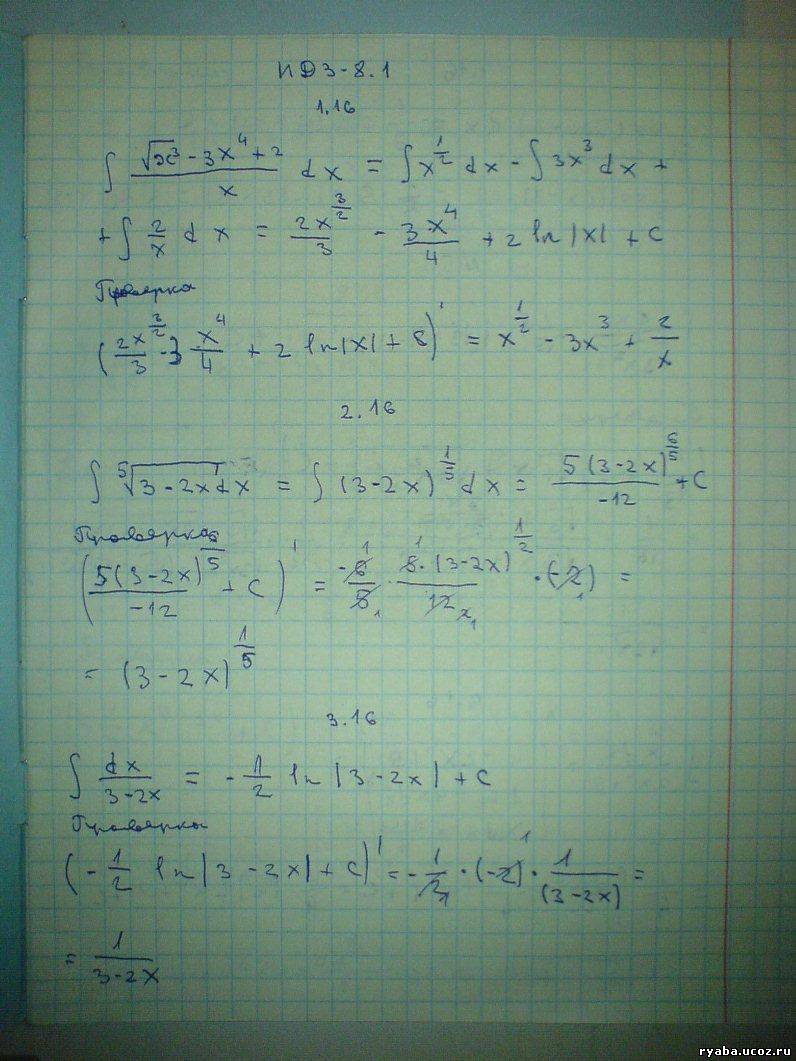 ИДЗ-8.1
1.16
∫ (√x³ - 3x⁴ + 2)/x dx = ∫ x^(1/2) dx - ∫ 3x³ dx +
+ ∫ 2/x dx = 2x^(3/2)/3 - 3x⁴/4 + 2 ln|x| + C
Проверка
(2x^(3/2)/3 - 3 x⁴/4 + 2 ln|x| + C)' = x^(1/2) - 3x³ + 2/x
2.16
∫ ⁵√(3-2x) dx = ∫ (3-2x)^(1/5) dx = 5(3-2x)^(6/5)/-12 + C
Проверка
(5(3-2x)^(6/5)/-12 + C)' = -6/5 · 5·(3-2x)^(1/2)/12 · (-2) =
= (3-2x)^(1/5)
3.16
∫ dx/(3-2x) = -1/2 ln|3-2x| + C
Проверка
(-1/2 ln|3-2x| + C)' = -1/2 · (-2) · 1/(3-2x) =
= 1/(3-2x)
ryaba.ucoz.ru